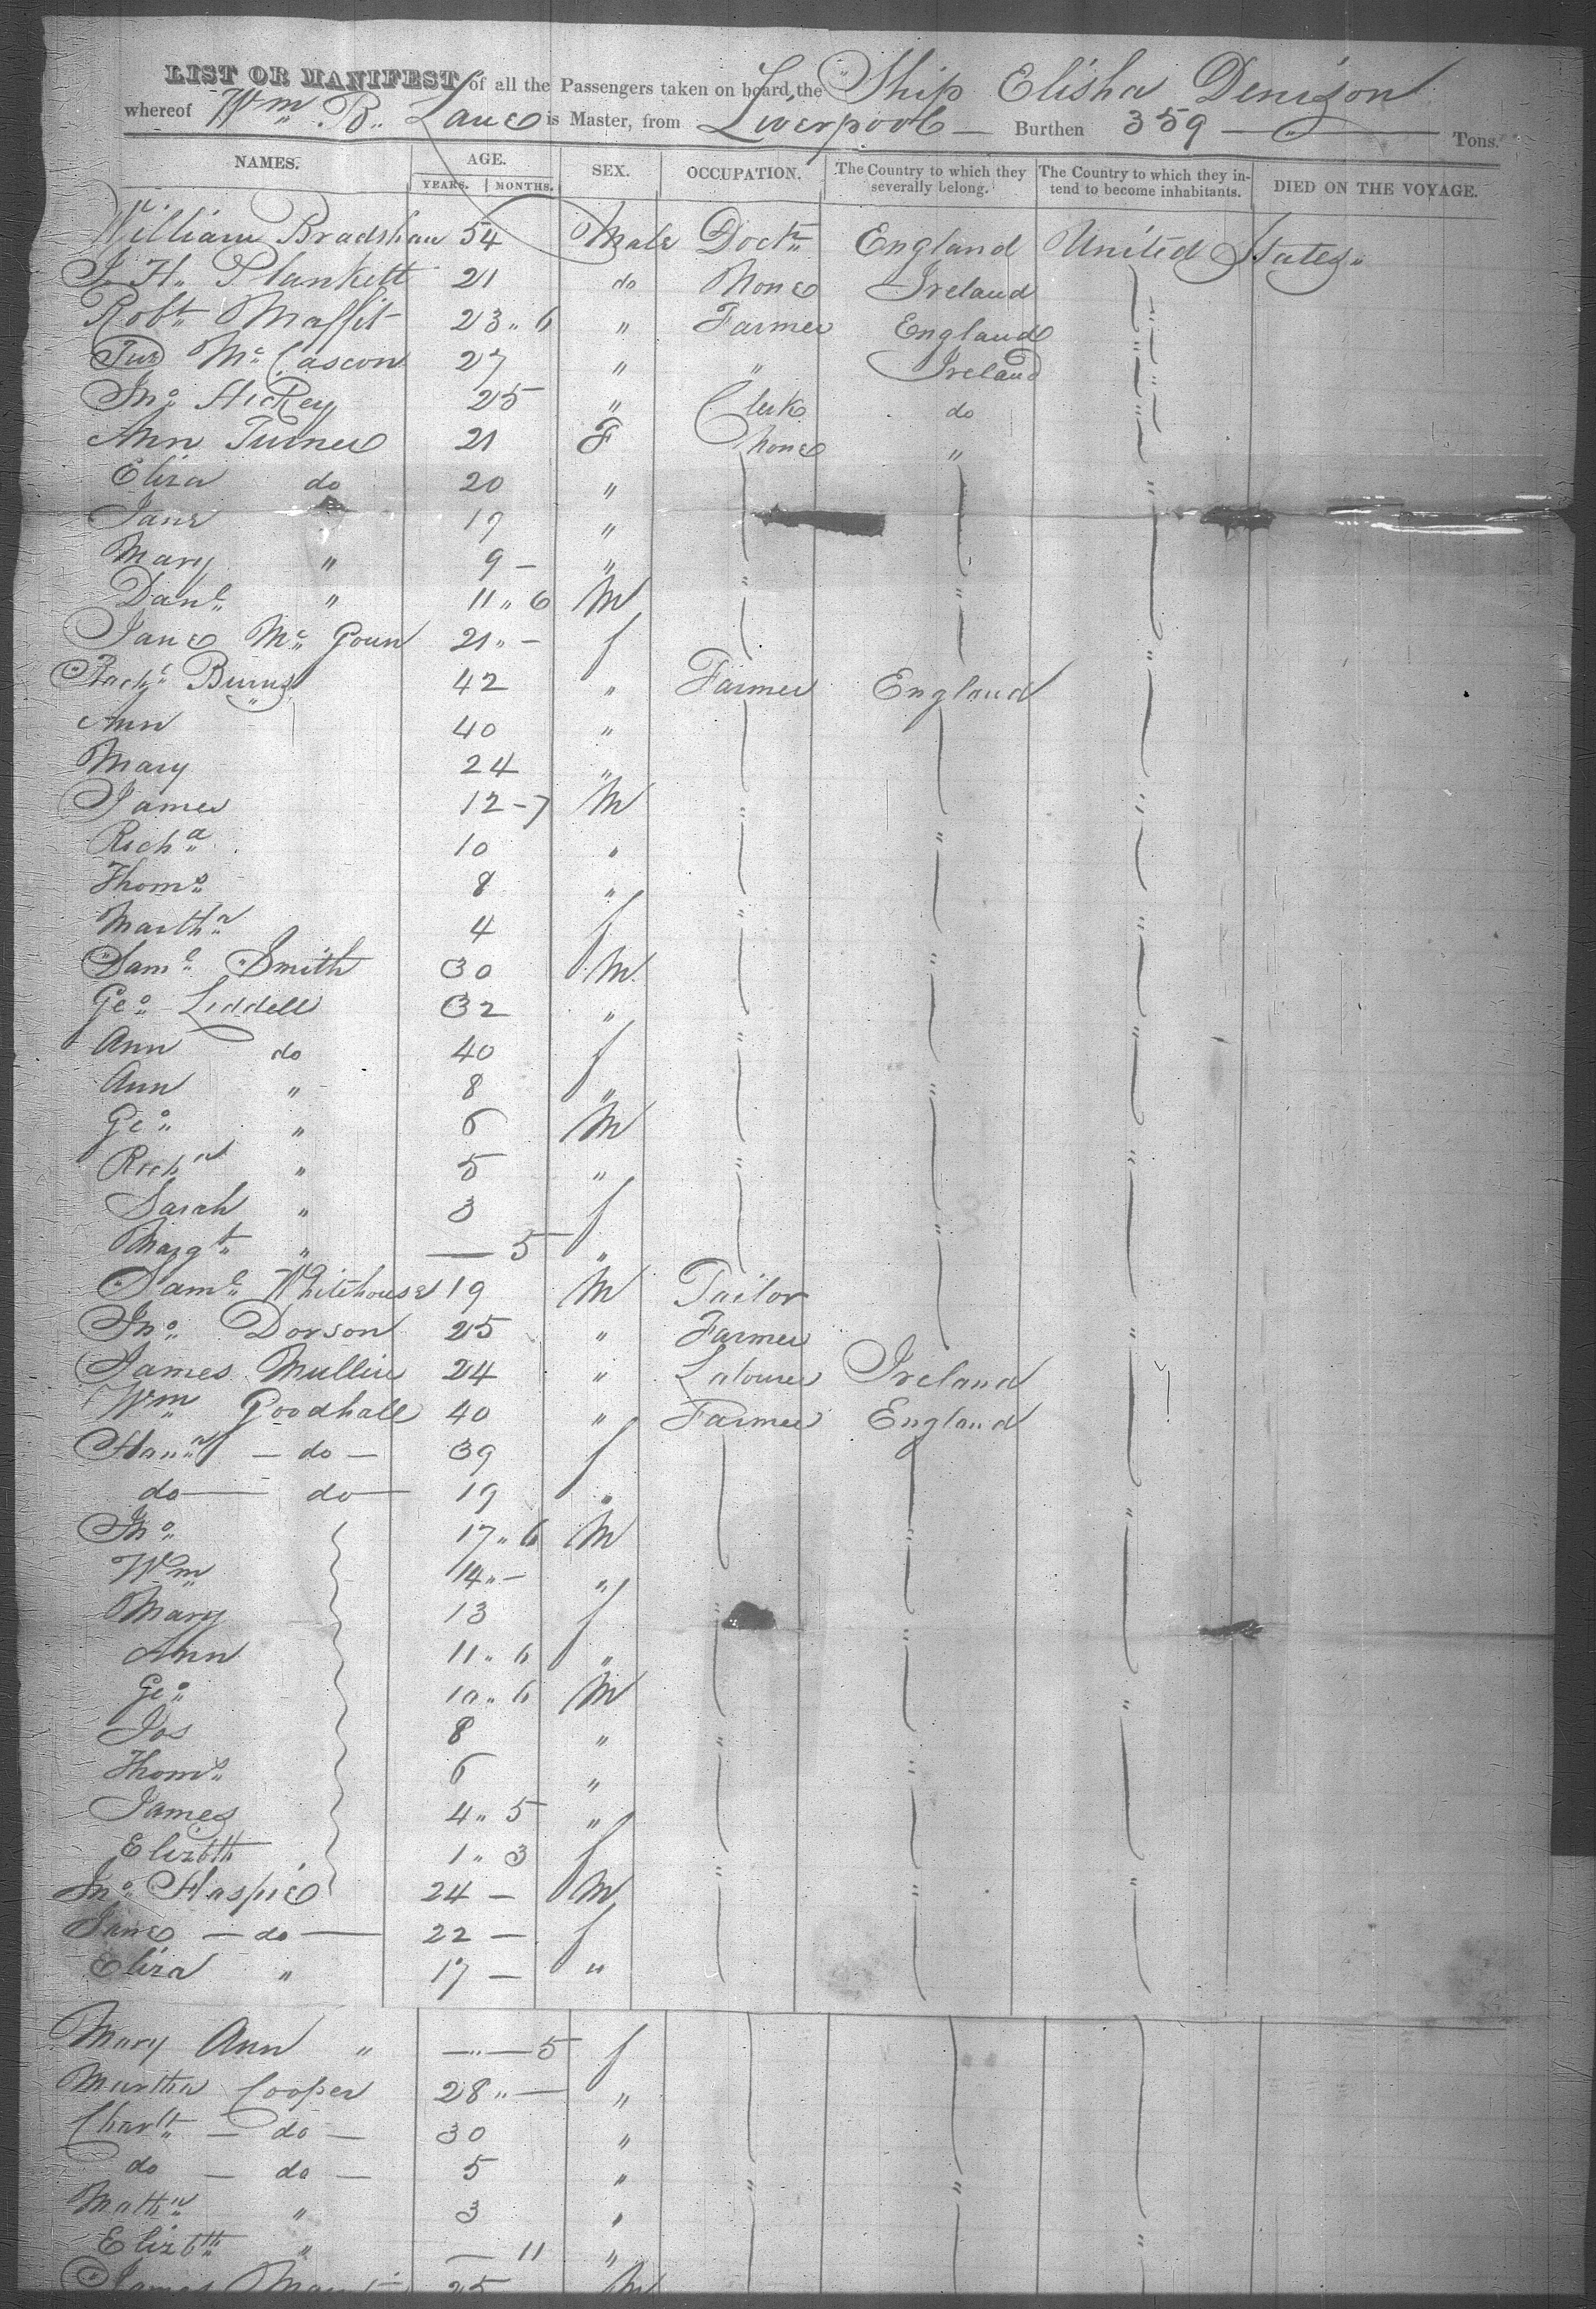 LIST OR MANIFEST of all the Passengers taken on board the Ship Elisha Denison
whereof Wm B. Lane is Master, from Liverpool — Burthen 359 — Tons.
NAMES. AGE. SEX. OCCUPATION. The Country to which they severally belong. The Country to which they intend to become inhabitants. DIED ON THE VOYAGE.
YEARS. MONTHS.
William Bradshaw 54 Male Doctr England United States
J. H. Plankett 21 do None Ireland
Robt Maffit 23 " 6 " Farmer England
Mc Cascon 27 " " Ireland
Jno Hickey 25 " Clerk do
Ann Turner 21 F None "
Eliza do 20 "
Jane 19 "
Mary " 9 — "
Danl " 11 " 6 M
Jane Mc Goun 21 " — f
Burns 42 " Farmer England
Ann 40 "
Mary 24 "
James 12 - 7 M
Richd 10 "
Thoms 8 "
Martha 4 f
Saml Smith 30 M
Geo Liddell 32 "
Ann do 40 f
Ann " 8 "
Geo " 6 M
Richd " 5 "
Sarah " 3 f
Margt " — 5 "
Saml Whitehouse 19 M Tailor
Jno Dorson 25 " Farmer
James Mullin 24 " Labourer Ireland
Wm Goodhall 40 " Farmer England
Hanna — do — 39 f
do — do — 19 "
Jno 17 " 6 M
Wm 14 " — "
Mary 13 f
Ann 11 " 6 "
Geo 10 " 6 M
Jos 8 "
Thoms 6 "
James 4 " 5 "
Elizbth 1 " 3 f
Jno Haspie 24 — M
Jane — do — 22 — f
Eliza " 17 — "
Mary Ann " — " — 5 f
Martha Cooper 28 " — "
Charltt — do — 30 "
do — do — 5 "
Matha " 3 "
Elizbth " — 11 "
James 25 M